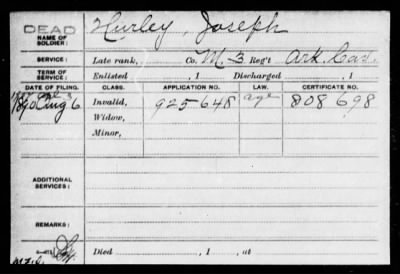 DEAD
NAME OF SOLDIER: Hurley, Joseph
SERVICE: Late rank, Co. M-3 Reg't Ark. Cav.
TERM OF SERVICE: Enlisted , 1 Discharged , 1
DATE OF FILING. CLASS. APPLICATION NO. LAW. CERTIFICATE NO.
Aug 6 Invalid, 925648 age 808698
Widow,
Minor,
ADDITIONAL SERVICES:
REMARKS:
Died , 1 , at